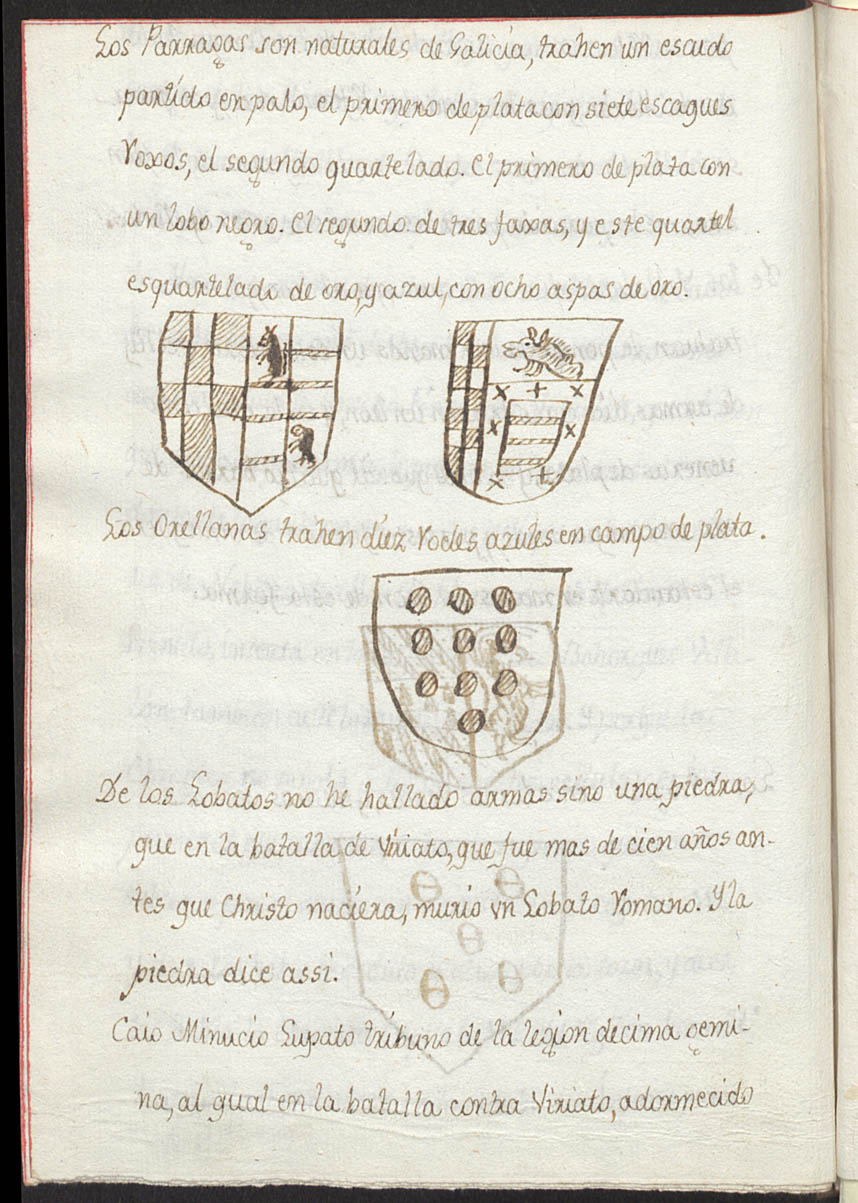 Los Parragas son naturales de Galicia, trahen un escudo
partido en palo, el primero de plata con siete escaques
roxos, el segundo quartelado. El primero de plata con
un lobo negro. El segundo de tres faxas, y este quartel
esquartelado de oro, y azul, con ocho aspas de oro.
Los Orellanas trahen diez roeles azules en campo de plata.
De los Lobatos no he hallado armas sino una piedra,
que en la batalla de Viriato, que fue mas de cien años an-
tes que Christo naciera, murio vn Lobato romano. Y la
piedra dice assi.
Caio Minucio Lupato tribuno de la legion decima gemi-
na, al qual en la batalla contra Viriato, adormecido